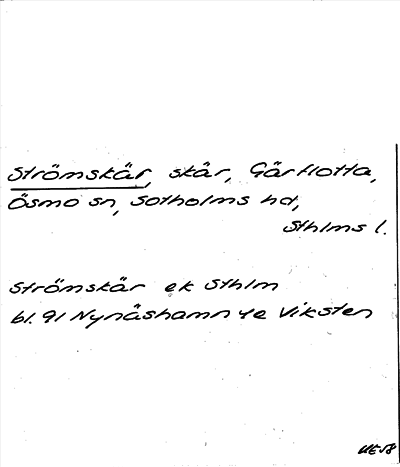 Strömskär, skär, Gårflotta,
Ösmo sn, Sotholms hd,
Sthlms l.
Strömskär ek Sthlm
bl. 91 Nynäshamn 4e Viksten